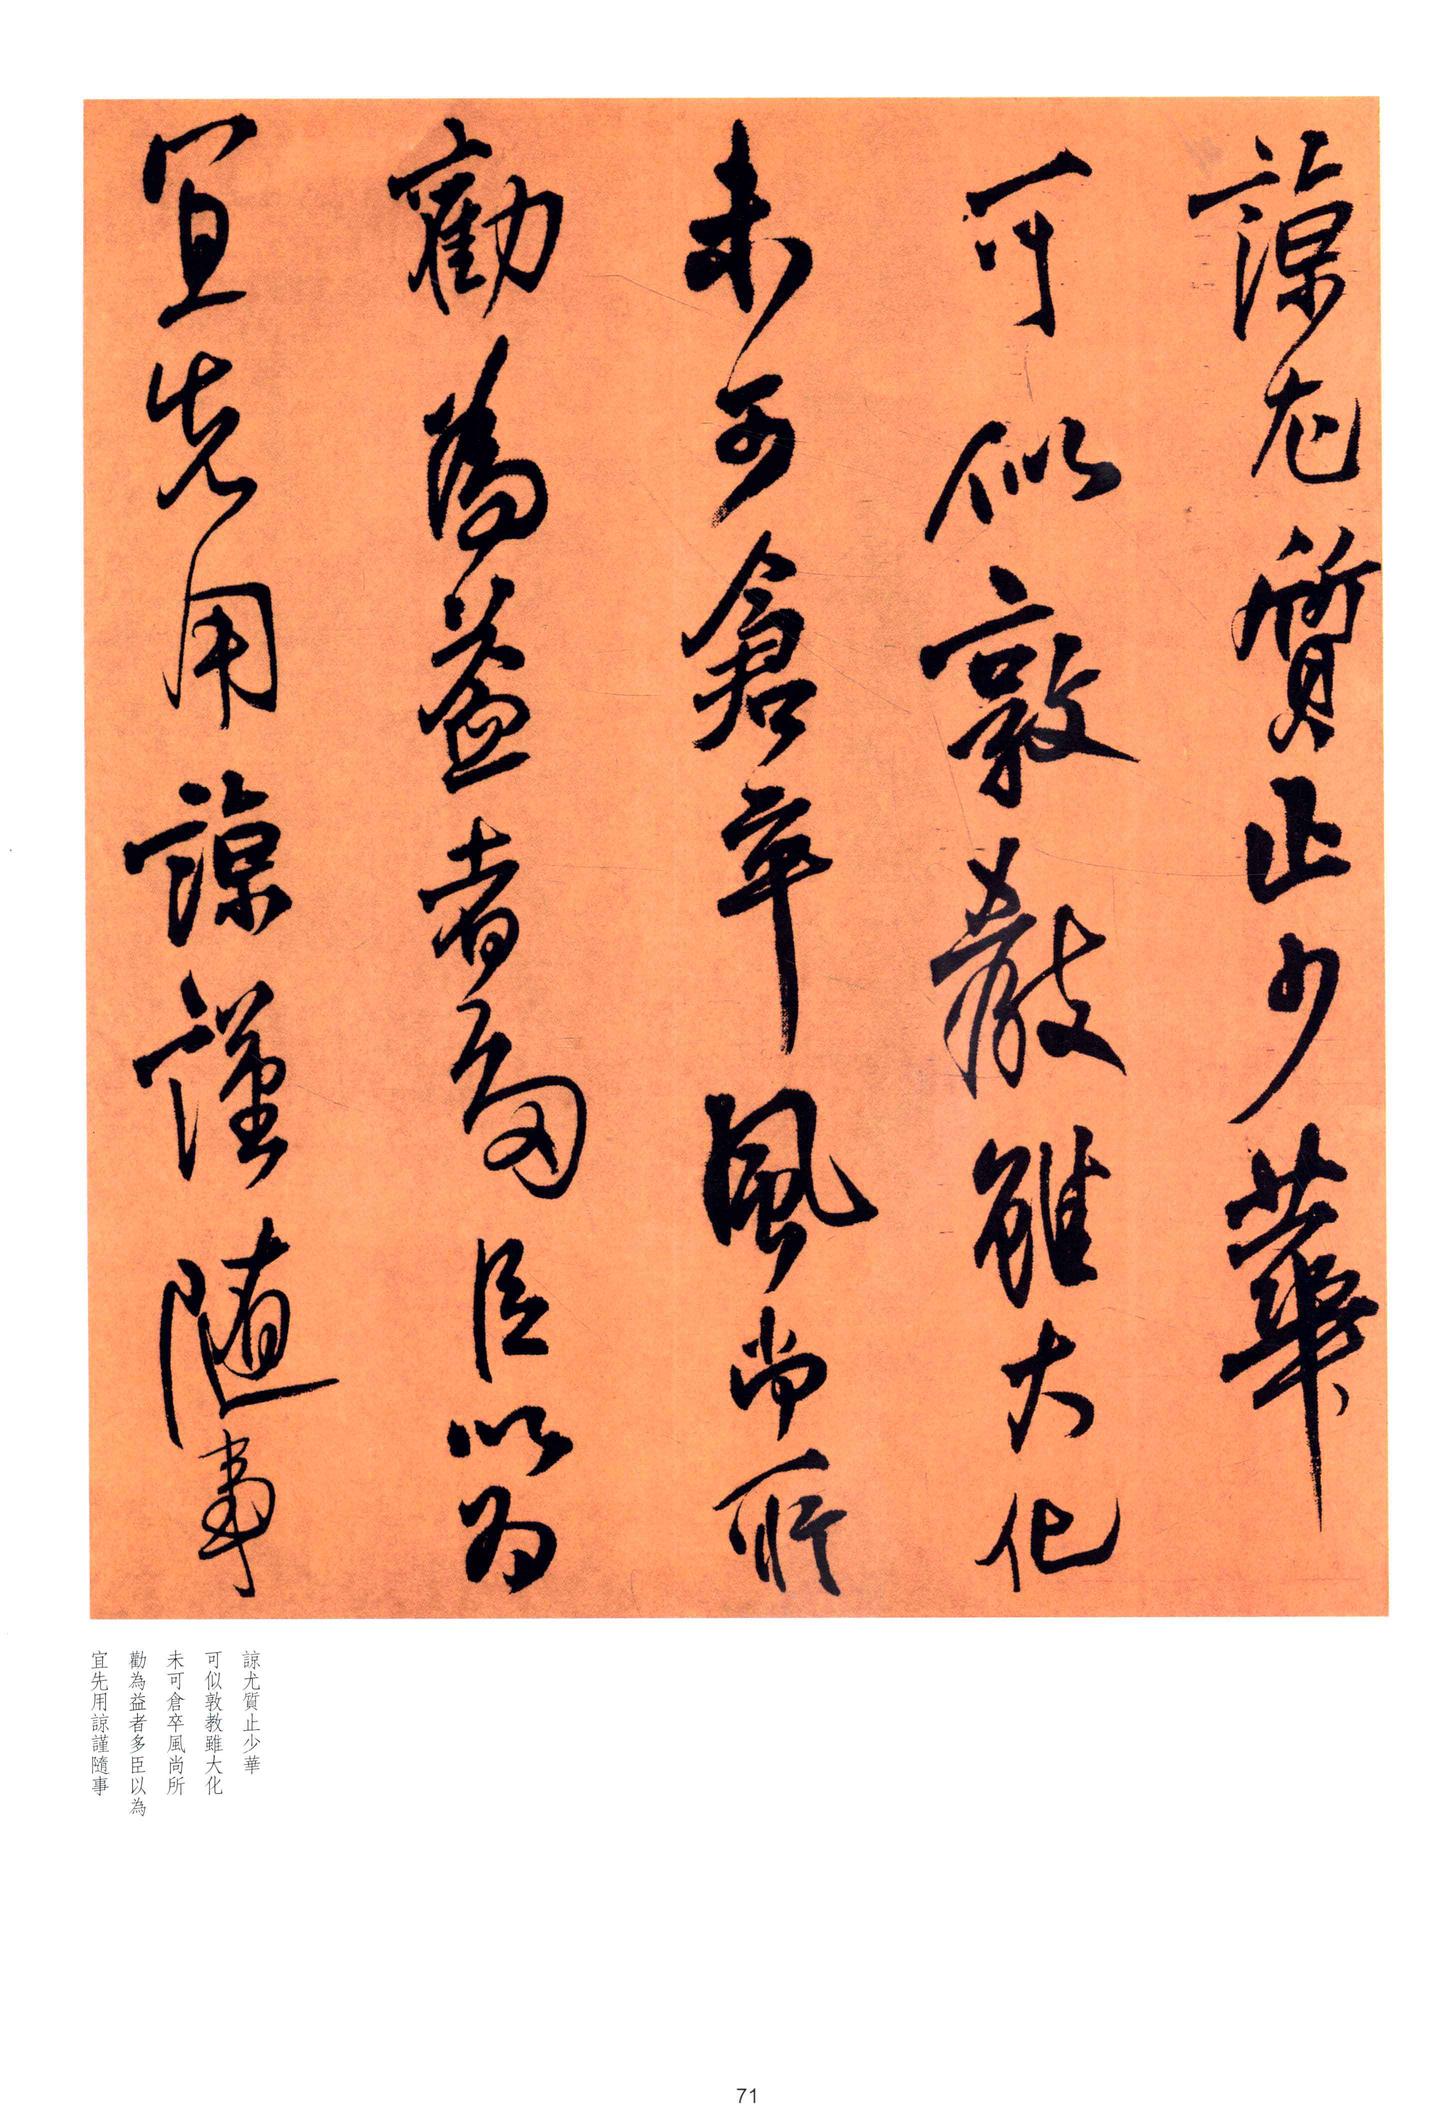 諒尤質止少華
可似敦教雖大化
未可倉卒風尚所
勸為益者多臣以為
宜先用諒謹隨事
諒尤質止少華
可似敦教雖大化
未可倉卒風尚所
勸為益者多臣以為
宜先用諒謹隨事
71